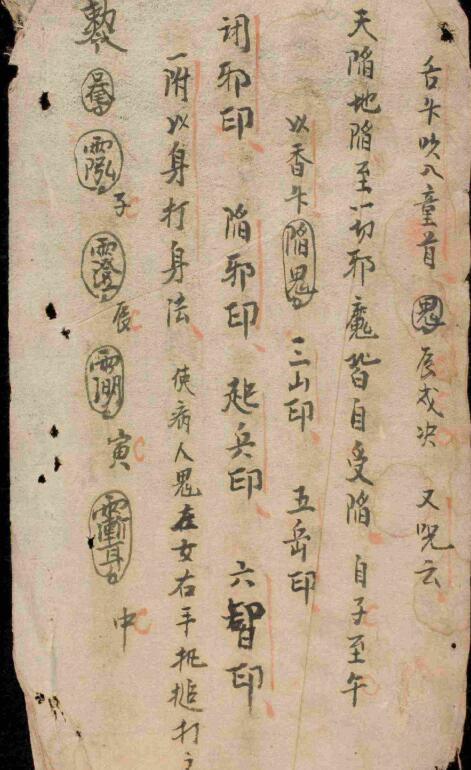 舌乍吹入童首 辰戌决 又咒云
天陷地陷至一切邪魔皆自受陷 自子至午
以香乍 三山印 五岳印
闭邪印 陷邪印 起兵印 六智印
一附以身打身法 使病人鬼在女右手 打
子 辰 寅 中